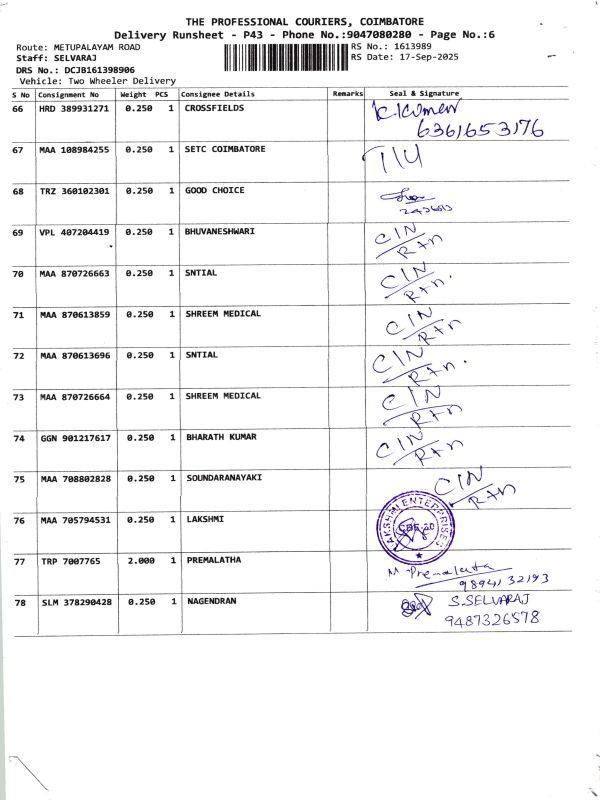 THE PROFESSIONAL COURIERS, COIMBATORE
Delivery Runsheet - P43 - Phone No.:9047080280 - Page No.:6
Route: METUPALAYAM ROAD RS No.: 1613989
Staff: SELVARAJ RS Date: 17-Sep-2025
DRS No.: DCJB161398906
Vehicle: Two Wheeler Delivery
S No Consignment No Weight PCS Consignee Details Remarks Seal & Signature
66 HRD 389931271 0.250 1 CROSSFIELDS K.Kumar
6361653176
67 MAA 108984255 0.250 1 SETC COIMBATORE
68 TRZ 360102301 0.250 1 GOOD CHOICE
69 VPL 407204419 0.250 1 BHUVANESHWARI CIN
RAN
70 MAA 870726663 0.250 1 SNTIAL CIN
RAN.
71 MAA 870613859 0.250 1 SHREEM MEDICAL CIN
RAN
72 MAA 870613696 0.250 1 SNTIAL CIN
RAN.
73 MAA 870726664 0.250 1 SHREEM MEDICAL CIN
RAN
74 GGN 901217617 0.250 1 BHARATH KUMAR CIN
RAN
75 MAA 708802828 0.250 1 SOUNDARANAYAKI CIN
RAN
76 MAA 705794531 0.250 1 LAKSHMI LAKSHMI ENTERPRISES
CBE-20
77 TRP 7007765 2.000 1 PREMALATHA M Premalatha
9894132193
78 SLM 378290428 0.250 1 NAGENDRAN S.SELVARAJ
9487326578